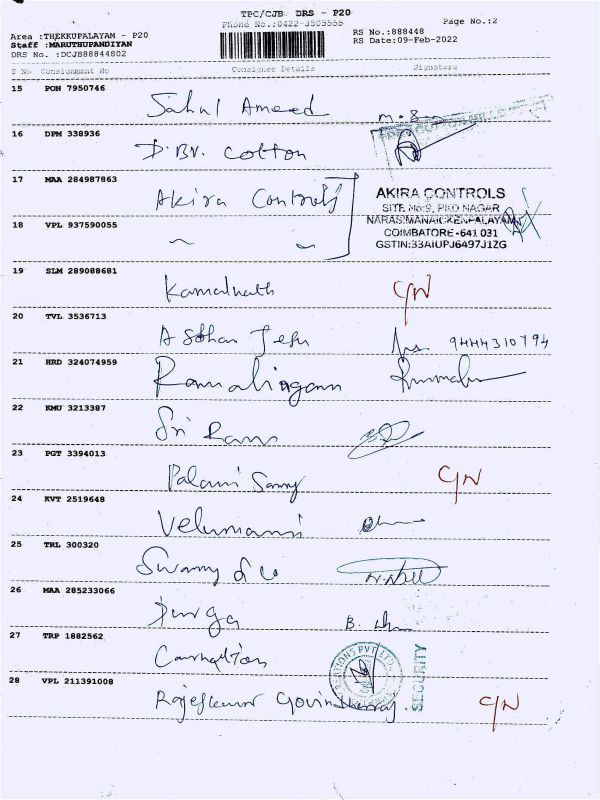 TPC/CJB DRS - P20
Phone No.:0422-3505555
Page No.:2
Area :THEKKUPALAYAM - P20
RS No.:888448
Staff :MARUTHUPANDIYAN
RS Date:09-Feb-2022
DRS No. :DCJB88844802
S No Consignment No Consignee Details Signature
15 PON 7950746
Sahul Ameed
16 DPM 338936
D.Bv. Cotton
17 MAA 284987863
Akira Controls
AKIRA CONTROLS
SITE No:9, PKD NAGAR
NARASIMANAICKENPALAYAM
COIMBATORE-641 031
GSTIN:33AIUPJ6497J1ZG
18 VPL 937590055
19 SLM 289088681
Kamalnath C/N
20 TVL 3536713
A Sothan Jesu 9444310794
21 HRD 324074959
Ramalingam
22 KMU 3213387
Sri Ram
23 PGT 3394013
Palani Samy C/N
24 KVT 2519648
Velumani
25 TRL 300320
Swamy
26 MAA 285233066
Durga B.
27 TRP 1882562
SECURITY
28 VPL 211391008
Rajeshkumar Govindharaj. C/N